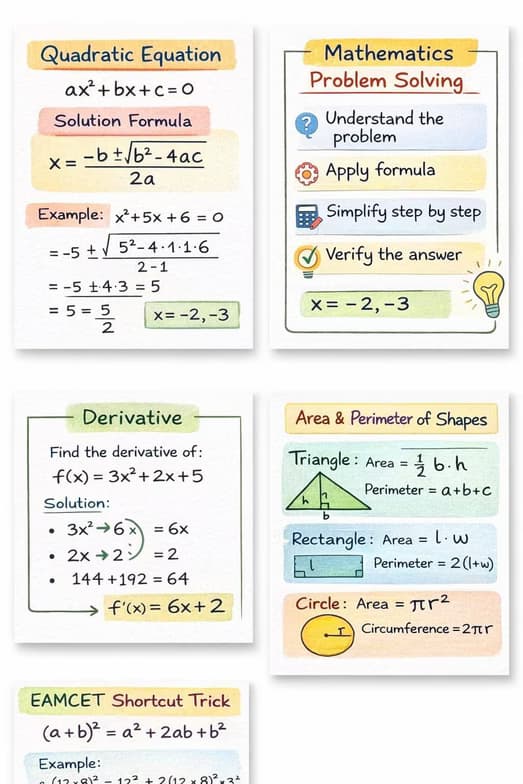 Quadratic Equation
ax²+bx+c=0
Solution Formula
x = −b ±√b² − 4ac
2a
Example: x²+5x+6 = 0
= -5 ± √ 5²-4·1·1·6
2-1
= -5 ±4·3 = 5
= 5 = 5
2
x= -2, -3
Mathematics
Problem Solving
?
Understand the
problem
Apply formula
Simplify step by step
Verify the answer
x = -2, -3
Derivative
Find the derivative of:
f(x) = 3x²+2x+5
Solution:
• 3x² → 6x = 6x
• 2x → 2 = 2
• 144+192 = 64
f'(x) = 6x+2
Area & Perimeter of Shapes
Triangle: Area = 1/2 b·h
Perimeter = a+b+c
h
b
Rectangle: Area = l·w
l
Perimeter = 2(l+w)
Circle: Area = πr²
r
Circumference = 2πr
EAMCET Shortcut Trick
(a+b)² = a² + 2ab + b²
Example: